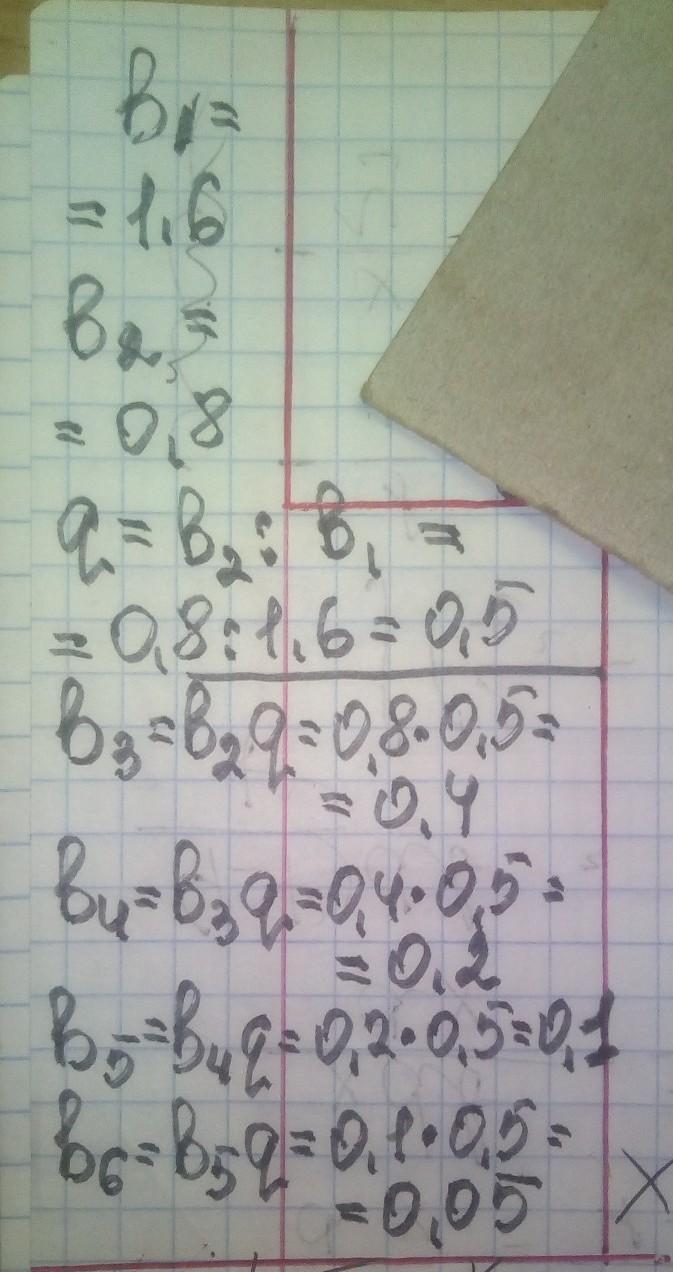 b₁=
=1,6
b₂=
=0,8
q=b₂:b₁=
=0,8:1,6=0,5
b₃=b₂q=0,8·0,5=
=0,4
b₄=b₃q=0,4·0,5=
=0,2
b₅=b₄q=0,2·0,5=0,1
b₆=b₅q=0,1·0,5=
=0,05
X